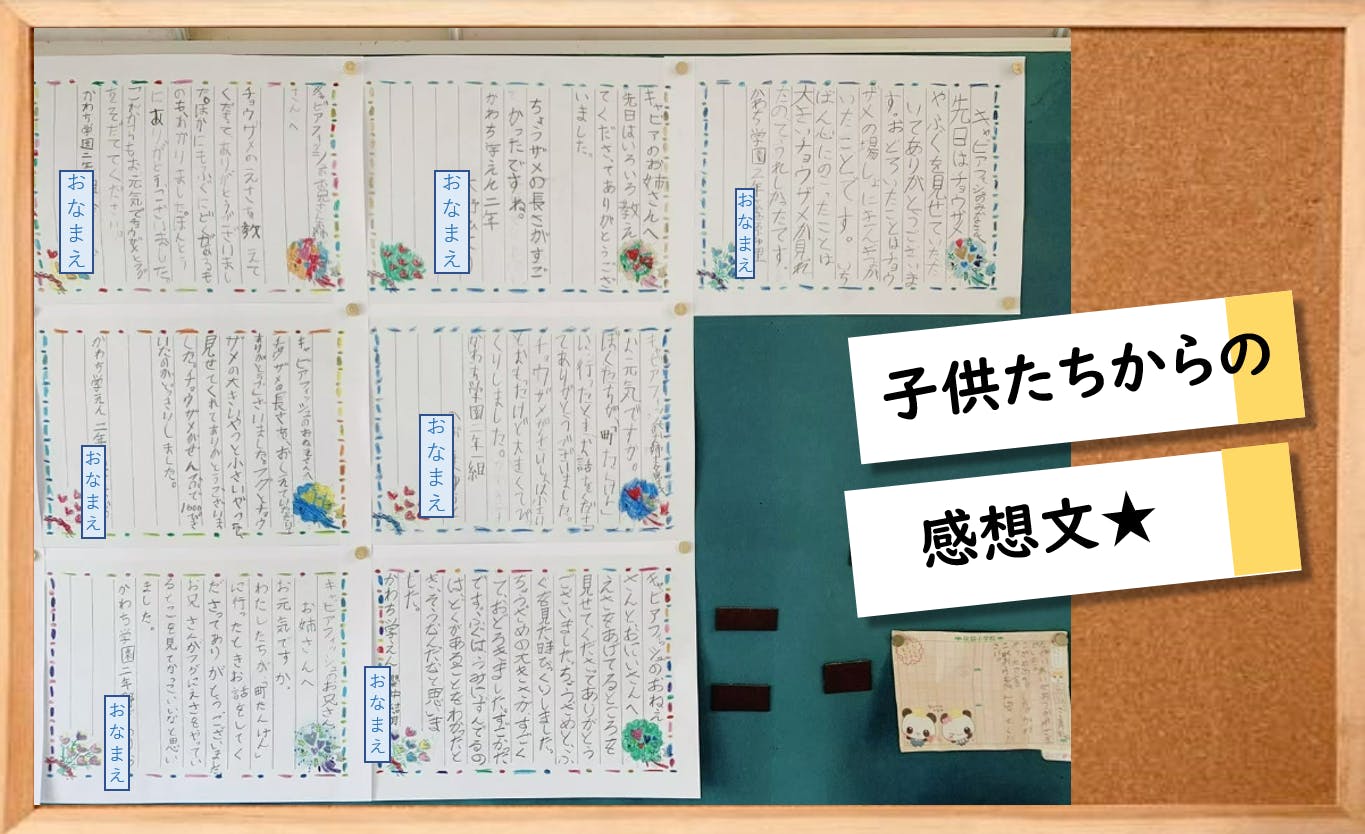 子供たちからの
感想文★
キャビアフィッシュのみなさんへ
先日はチョウザメ
やふぐを見せていただ
いてありがとうございま
す。おどろいたことはチョウ
ザメの場しょに
いたことです。いち
ばん心にのこったことは
大きいチョウザメが見れ
たのでうれしかったです。
かわち学園二年
おなまえ
キャビアのお姉さんへ
先日はいろいろ教え
てくださってありがとうござ
いました。
ちょうザメの長さがすご
かったですね。
かわち学えん二年
おなまえ
さんへ
チョウザメのえさを教えて
くださってありがとうございまし
た。ほかにもふぐにどくがあるも
のもわかりました。ほんとう
にありがとうございました。
これからもお元気でチョウザメとふぐ
をそだててください。
かわち学園二年
おなまえ
キャビアフィッシュのお姉さんへ
お元気ですか。
ぼくたちが「町たんけん」
に行ったときお話をくださっ
てありがとうございました。
チョウザメがさいしょは小さい
とおもったけど大きくてびっ
くりしました。
かわち学園二年二組
おなまえ
キャビアフィッシュのおねえさんへ
チョウザメの長さを、おしえていただり
ありがとうございました。フグとチョウ
ザメの大きいやつと小さいやつを
見せてくれてありがとうございま
した。チョウザメがぜんぶで1000びき
いたのがびっくりしました。
かわち学えん二年
おなまえ
キャビアフィッシュのおねえ
さんとおにいさんへ
えさをあげてるところを
見せてくださってありがとう
ございました。ちょうざめとふ
ぐを見た時びっくりしました。
ちょうざめの大きさがすごく
ておどろきました。
です。ふぐはうみにすんでるの
は、どくがあることをわかったと
き、そうなんだなと思いま
した。
かわち学えん
おなまえ
キャビアフィッシュのお兄さん
お姉さんへ
お元気ですか。
わたしたちが、「町たんけん」
に行ったときお話をしてく
ださってありがとうございました。
お兄さんがフグにえさをやってい
るとこを見てかっこいいなと思い
ました。
かわち学園二年
おなまえ